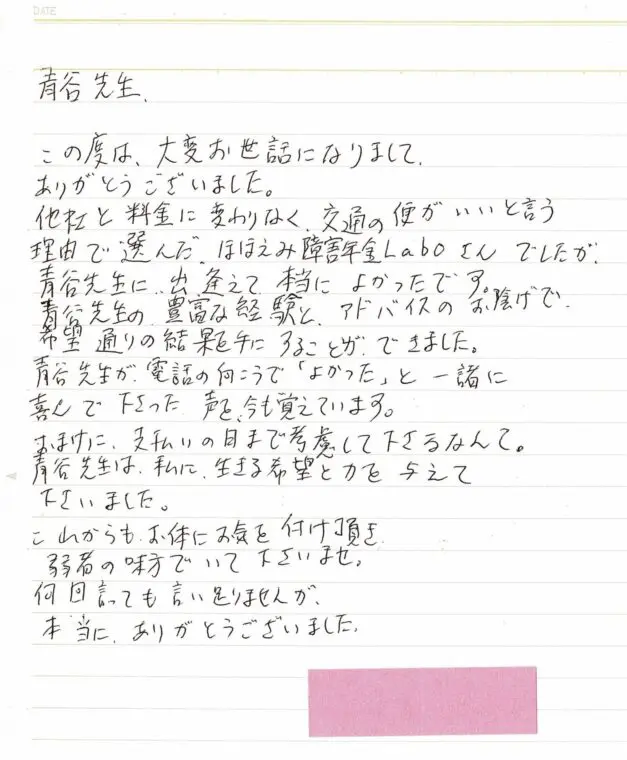 DATE
青谷先生、
この度は、大変お世話になりまして、
ありがとうございました。
他社と料金に変わりなく、交通の便がいいと言う
理由で選んだ、ほほえみ障害年金Laboさんでしたが、
青谷先生に出逢えて本当によかったです。
青谷先生の豊富な経験と、アドバイスのお陰げで、
希望通りの結果を手にすることができました。
青谷先生が、電話の向こうで「よかった」と一緒に
喜んで下さった声を、今も覚えています。
おまけに、支払いの日まで考慮して下さるなんて。
青谷先生は、私に、生きる希望と力を与えて
下さいました。
これからも、お体にお気を付け頂き
弱者の味方でいて下さいませ。
何回言っても言い足りませんが、
本当に、ありがとうございました。